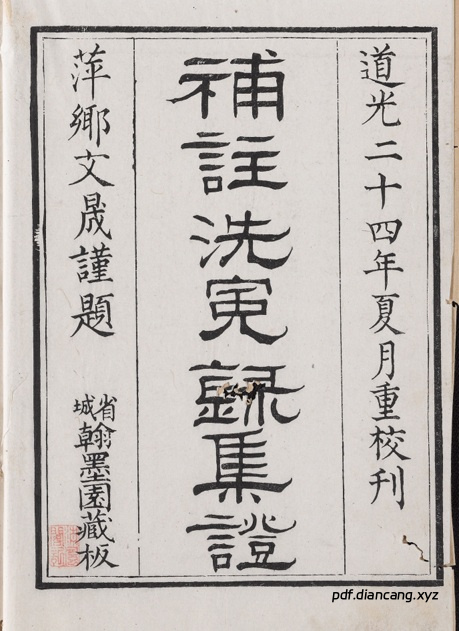 道光二十四年夏月重校刊
補註洗冤錄集證
萍鄉文晟謹題
省城翰墨園藏板
pdf.diancang.xyz